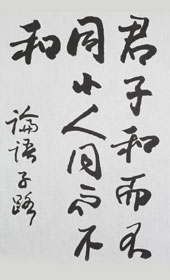 君子和而不
同小人同而不
和
論語子路